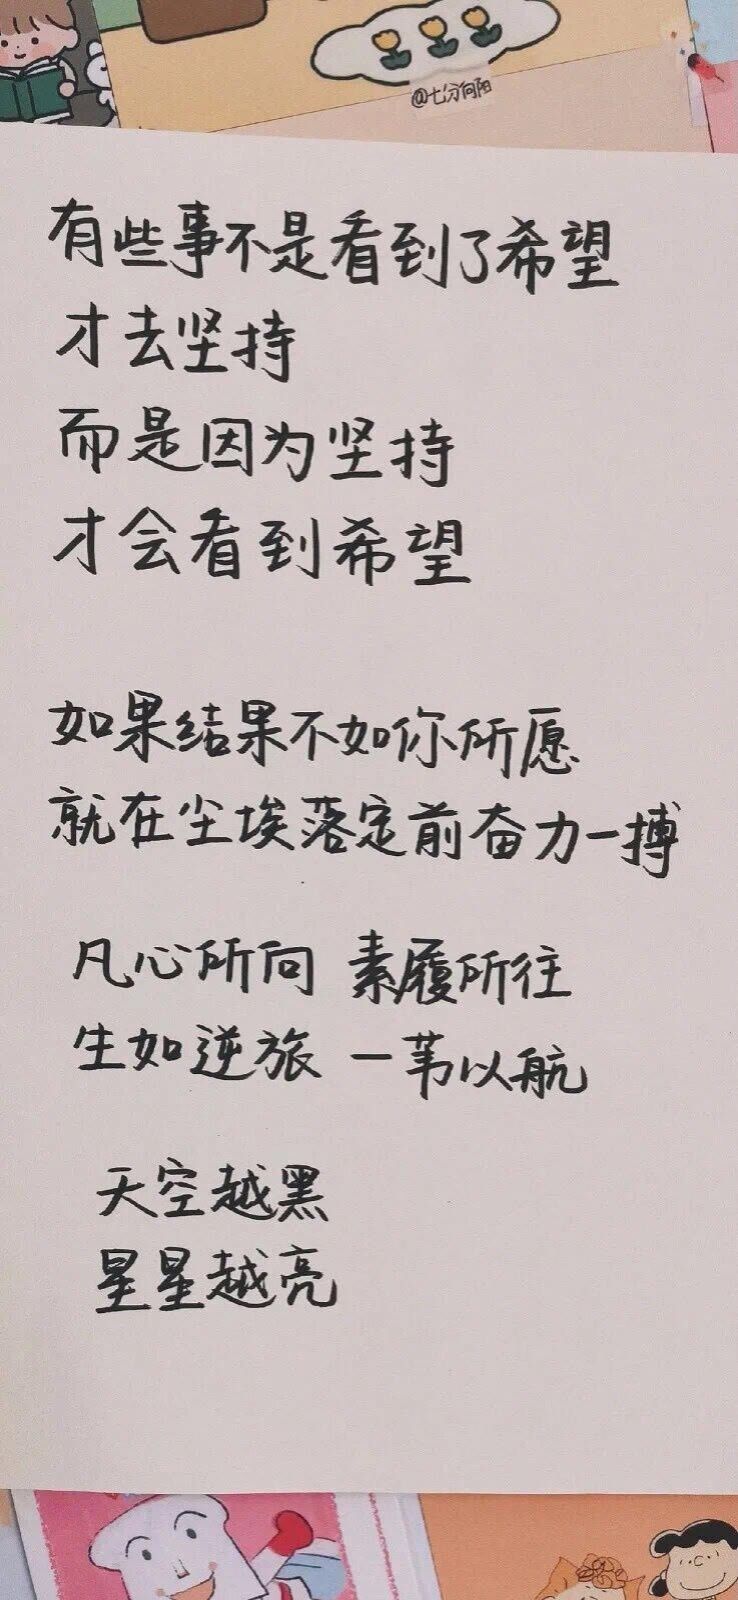 @七分向阳
有些事不是看到了希望
才去坚持
而是因为坚持
才会看到希望
如果结果不如你所愿
就在尘埃落定前奋力一搏
凡心所向 素履所往
生如逆旅 一苇以航
天空越黑
星星越亮